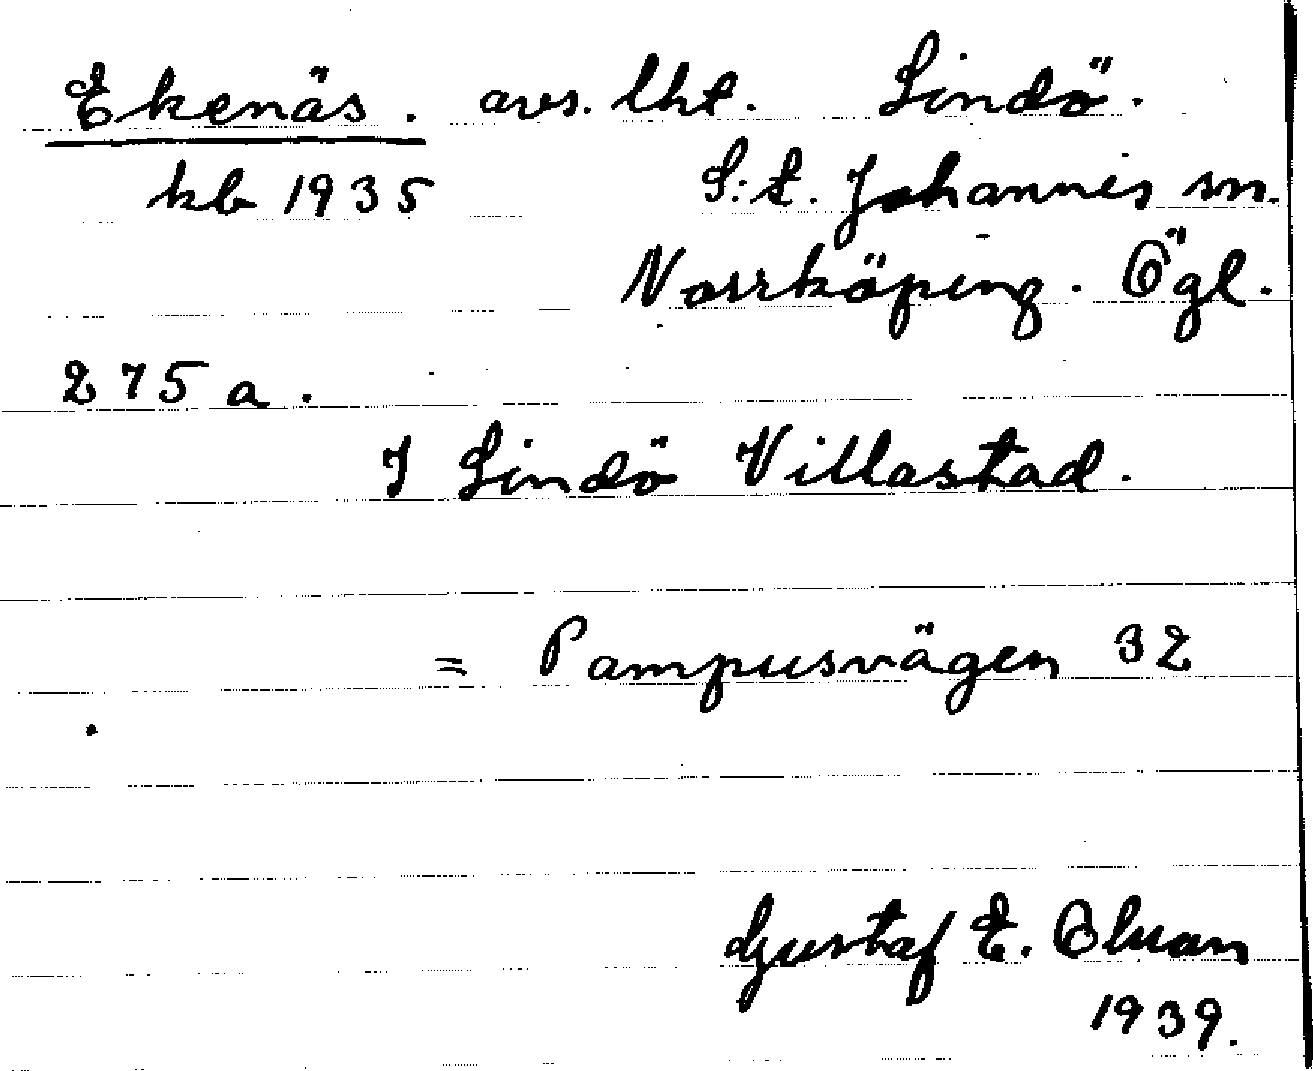 Ekenäs. avs. lht. Lindö.
kb 1935 S:t. Johannes sn.
Norrköping. Ögl.
275 a.
I Lindö Villastad.
= Pampusvägen 32
Gustaf E. Olson
1939.